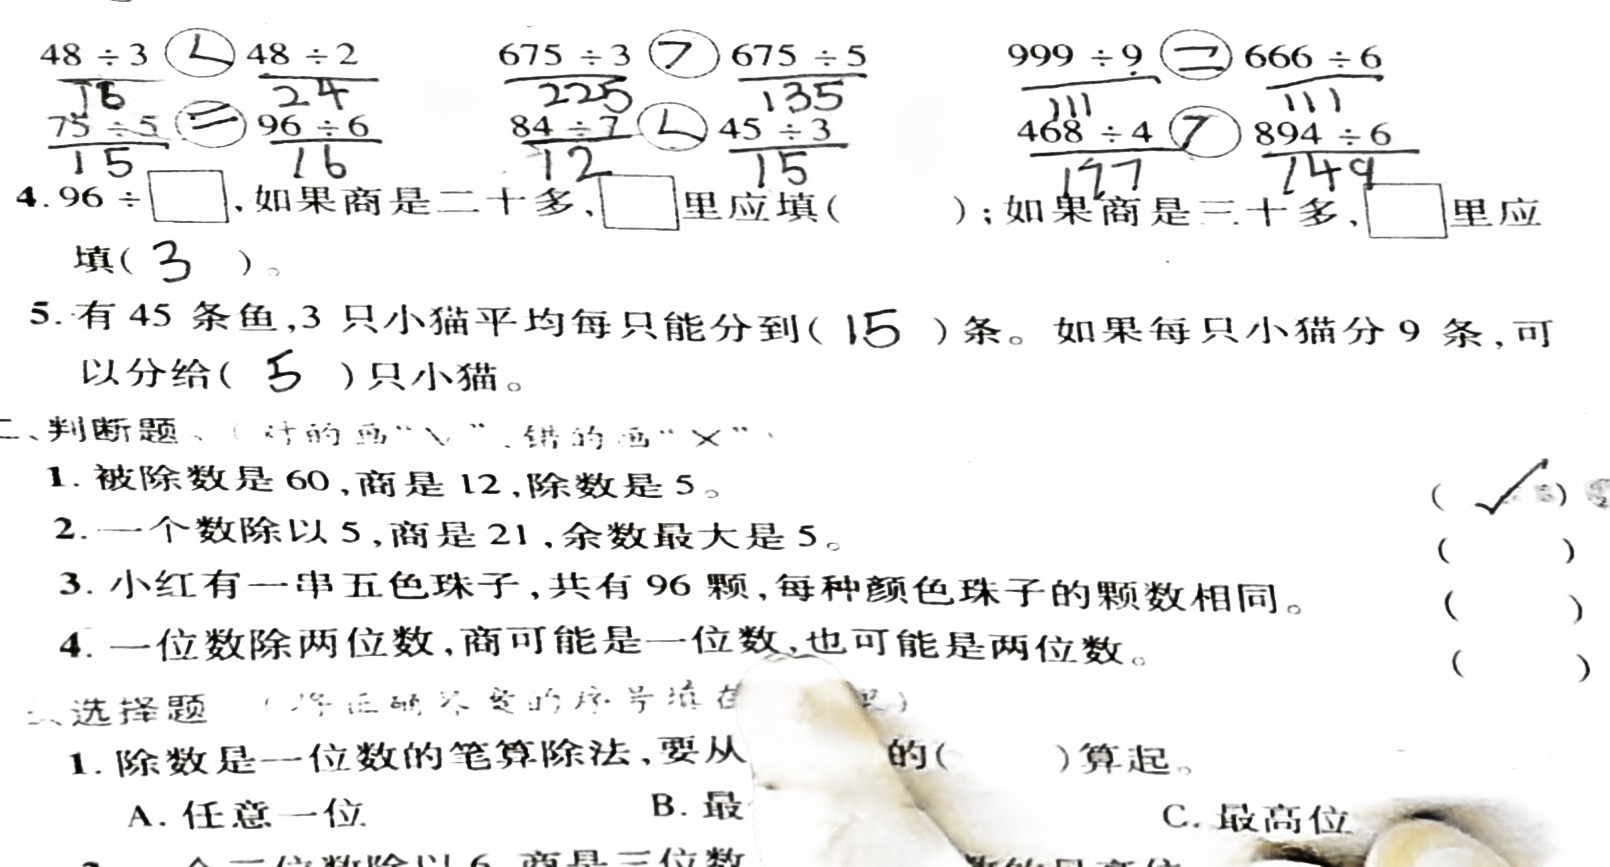 48÷3 < 48÷2 675÷3 > 675÷5 999÷9 = 666÷6
16 24 225 135 111 111
75÷5 = 96÷6 84÷7 < 45÷3 468÷4 > 894÷6
15 16 12 15 177 149
4. 96÷□,如果商是二十多,□里应填( );如果商是三十多,□里应
填( 3 )。
5. 有 45 条鱼,3 只小猫平均每只能分到( 15 )条。如果每只小猫分 9 条,可
以分给( 5 )只小猫。
二、判断题。(对的画“√”,错的画“×”)
1. 被除数是 60,商是 12,除数是 5。 ( ✓ )
2. 一个数除以 5,商是 21,余数最大是 5。 ( )
3. 小红有一串五色珠子,共有 96 颗,每种颜色珠子的颗数相同。 ( )
4. 一位数除两位数,商可能是一位数,也可能是两位数。 ( )
选择题 (将正确答案的序号填在
1. 除数是一位数的笔算除法,要从 的( )算起。
A. 任意一位 B. 最 C. 最高位
一个三位数除以 6,商是三位数